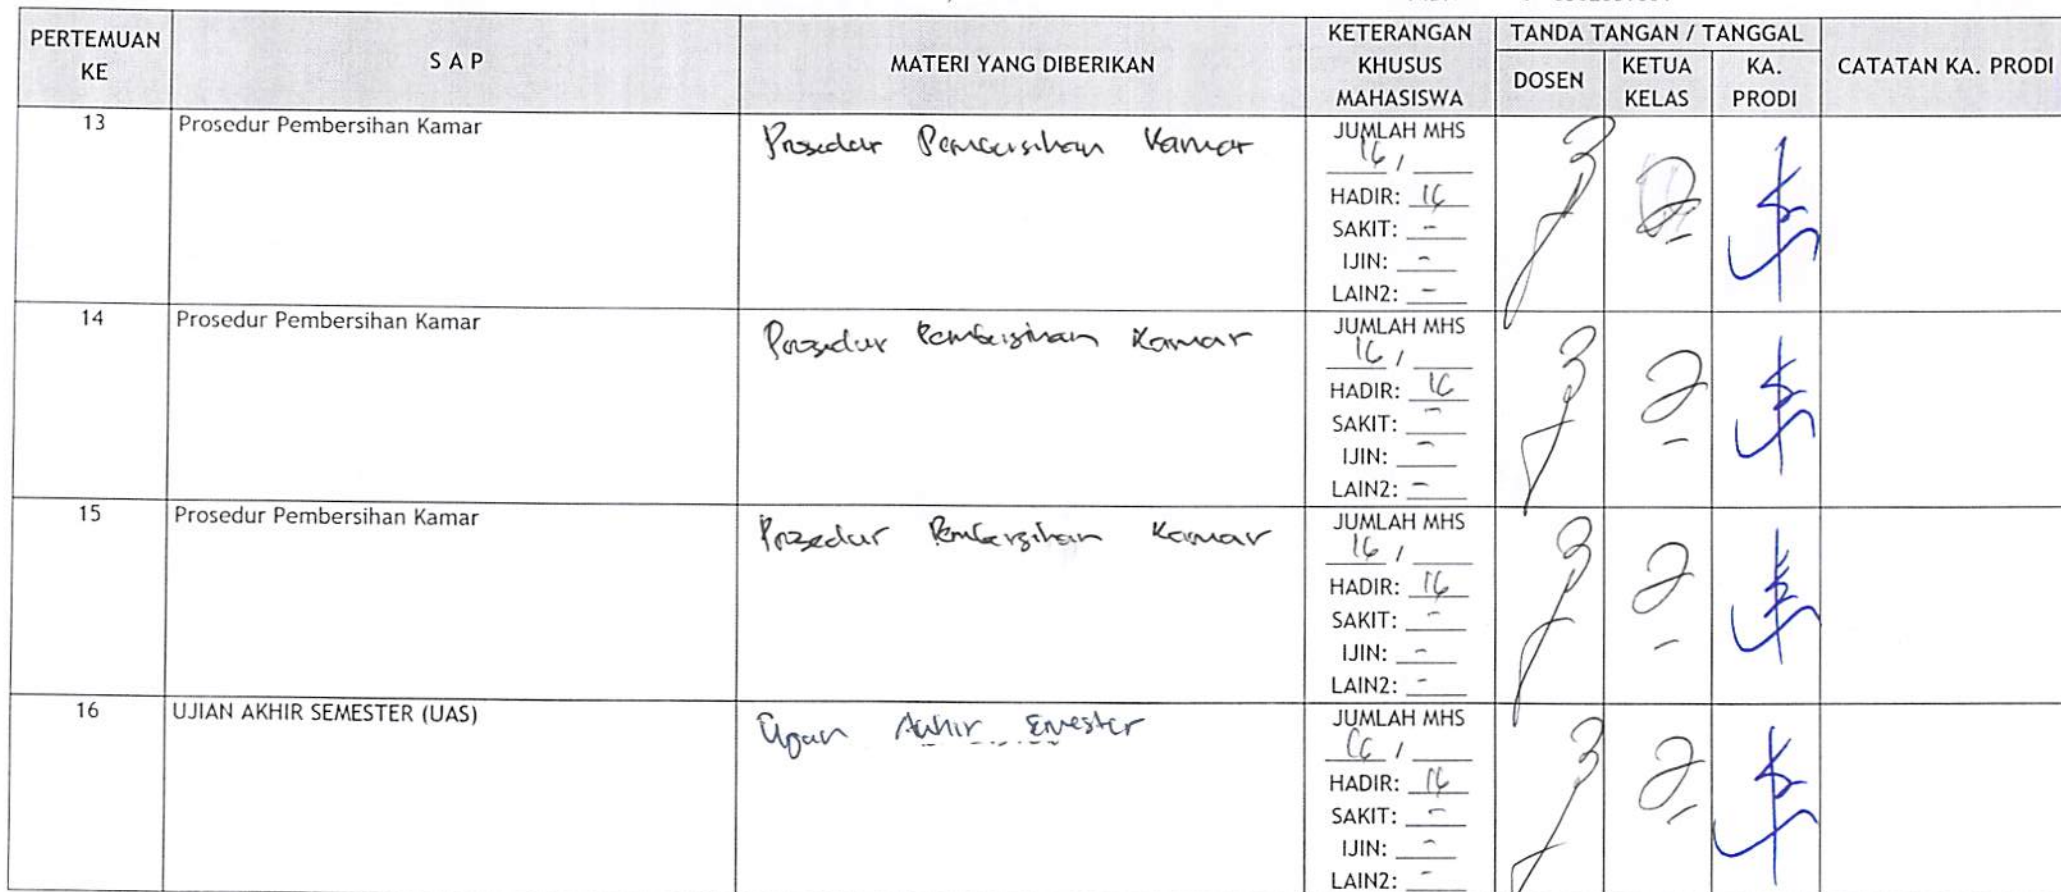 PERTEMUAN KE
S A P
MATERI YANG DIBERIKAN
KETERANGAN KHUSUS MAHASISWA
TANDA TANGAN / TANGGAL
DOSEN
KETUA KELAS
KA. PRODI
CATATAN KA. PRODI
13
Prosedur Pembersihan Kamar
Prosedur Pembersihan Kamar
JUMLAH MHS
16 /
HADIR: 16
SAKIT: -
IJIN: -
LAIN2: -
14
Prosedur Pembersihan Kamar
Prosedur Pembersihan Kamar
JUMLAH MHS
16 /
HADIR: 16
SAKIT: -
IJIN: -
LAIN2: -
15
Prosedur Pembersihan Kamar
Prosedur Pembersihan Kamar
JUMLAH MHS
16 /
HADIR: 16
SAKIT: -
IJIN: -
LAIN2: -
16
UJIAN AKHIR SEMESTER (UAS)
Ujian Akhir Semester
JUMLAH MHS
16 /
HADIR: 16
SAKIT: -
IJIN: -
LAIN2: -